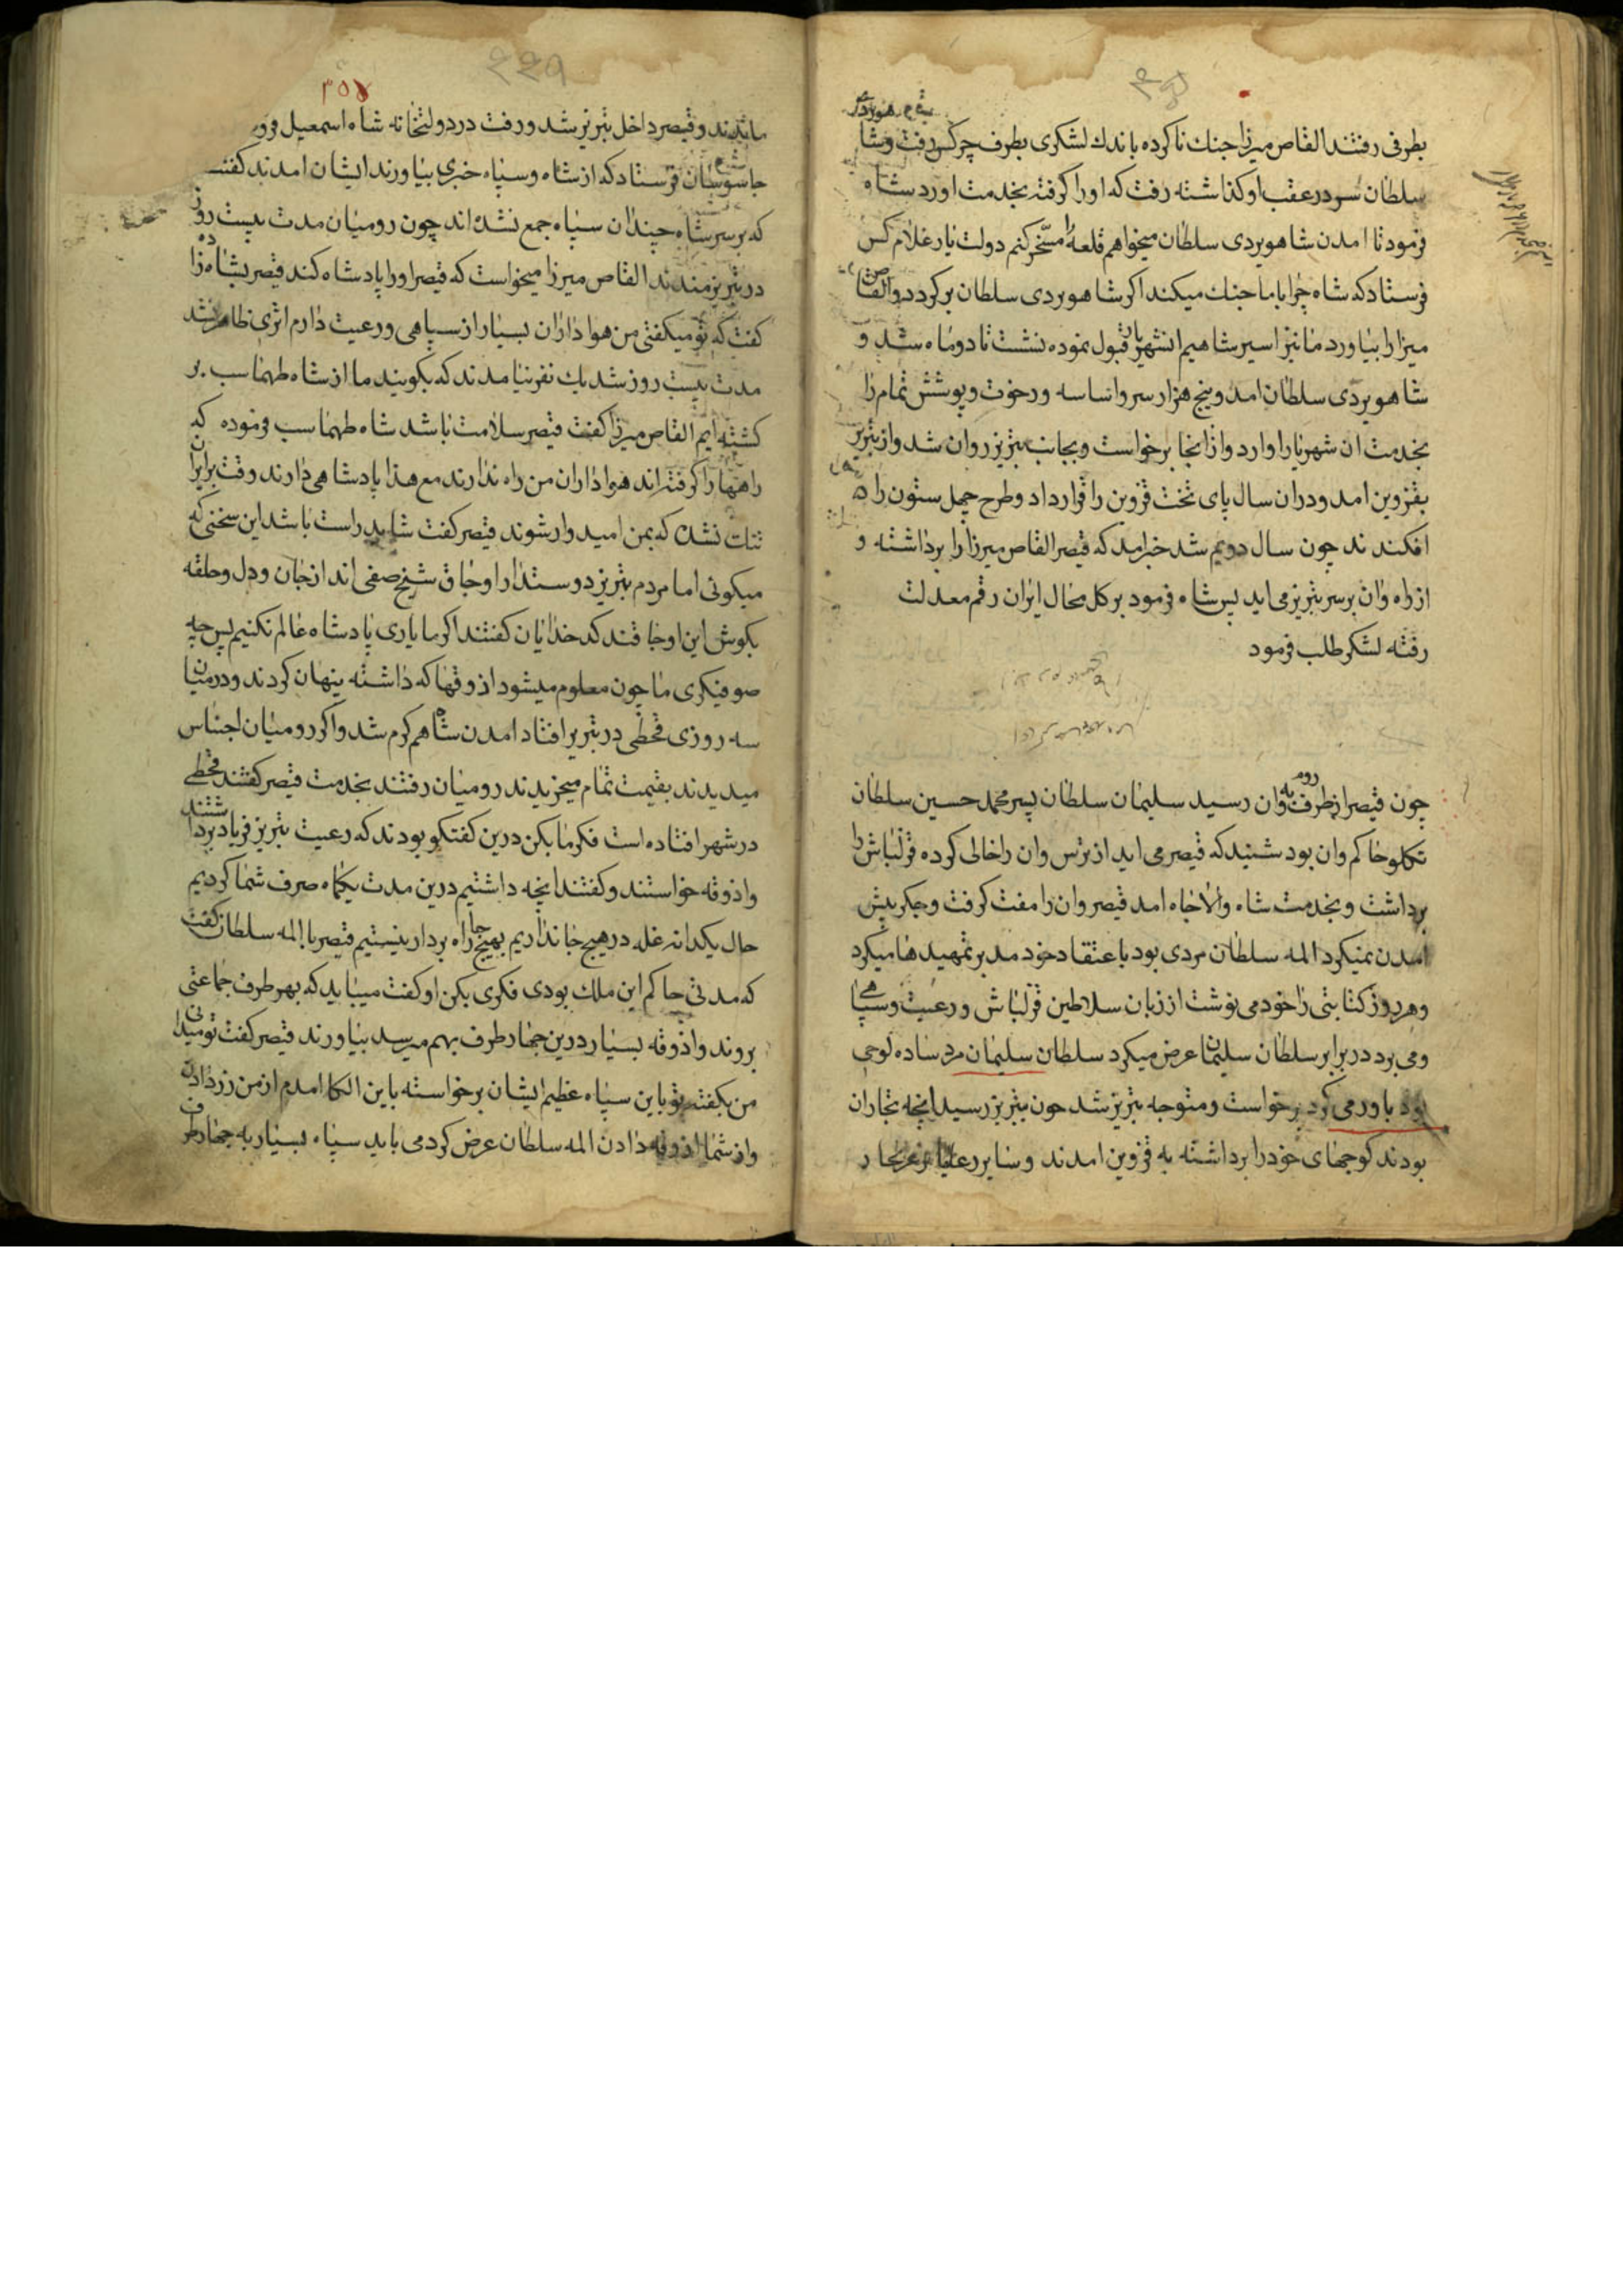 بطرفی رفتند القاص میرزا جنك ناکرده باندك لشکری بطرف چرکس رفت وشا
سلطان سر در عقب او کذاشته رفت که اورا کرفته بخدمت اورد شاه
فرمود تا امدن شاهویردی سلطان میخواهم قلعه را مسخر کنم دولت یار غلام کس
فرستاد که شاه چرا باما جنك میکند اکر شاهویردی سلطان برکردد والقاص
میرزا را بیاورد ما نیز اسیر شاهیم انشهریار قبول نموده نشست تا دوماه شد و
شاهویردی سلطان امد وپنج هزار سر واناسه ورخوت وپوشش تمام را
بخدمت ان شهریار اوارد واز انجا برخواست وبجانب تبریز روان شد واز تبریز
بقزوین امد ودران سال پای تخت قزوین را قرار داد وطرح چهل ستون را
افکندند چون سال دویم شد خبر امد که قیصر القاص میرزا را برداشته و
از راه وان بر سر تبریز می اید پس شاه فرمود بر کل محال ایران رقم معدلت
رفته لشکر طلب فرمود
چون قیصر از طرف روم به وان رسید سلیمان سلطان پسر محمد حسین سلطان
تکلو حاکم وان بود شنید که قیصر می اید از ترس وان را خالی کرده قزلباش را
برداشت وبخدمت شاه والاجاه امد قیصر وان را مفت کرفت وجکر پیش
امدن نمیکرد المه سلطان مردی بود باعتقاد خود مدبر تمهیدها میکرد
وهر روز کتابتی را خود می نوشت از زبان سلاطین قزلباش ورعیت وسپاهی
ومی برد در برابر سلطان سلیمان عرض میکرد سلطان سلیمان مرد ساده لوحی
بود باور می کرد برخواست ومتوجه تبریز شد چون بتبریز رسید انچه تجاران
بودند کوچهای خودرا برداشته به قزوین امدند وسایر رعایا
ماندند وقیصر داخل تبریز شد ورفت در دولتخانه شاه اسمعیل
جاسوسان فرستاد که از شاه وسپاه خبری بیاورند ایشان امدند کفتند
که بر سر شاه چندان سپاه جمع نشده اند چون رومیان مدت بیست روز
در تبریز مندند القاص میرزا میخواست که قیصر اورا پادشاه کند قیصر بشاهزاده
کفت که تو میکفتی من هواداران بسیار از سپاهی ورعیت دارم اثری ظاهر نشد
مدت بیست روز شد یك نفر نیامدند که بکویند ما از شاه طهماسب بر
کشته ایم القاص میرزا کفت قیصر سلامت باشد شاه طهماسب فرموده که
راهها را کرفته اند هواداران من راه ندارند مع هذا پادشاهی دارند وقت برایران
تنك نشده که بمن امیدوار شوند قیصر کفت شاید راست باشد این سخنی که
میکوئی اما مردم تبریز دوستدار اوجاق شیخ صفی اند از جان ودل وحلقه
بکوش این اوجاقند کدخدایان کفتند اکر ما یاری پادشاه عالم نکنیم پس چه
صوفیکری ما چون معلوم میشود اذوقها که داشته پنهان کردند ودرمیان
سه روزی قحطی در تبریز افتاد امدن شاه هم کرم شد واکر رومیان اجناس
میدیدند بقیمت تمام میخریدند رومیان رفتند بخدمت قیصر کفتند قحطی
در شهر افتاده است فکر ما بکن درین کفتکو بودند که رعیت تبریز فریاد برداشتند
واذوقه خواستند وکفتند انچه داشتیم درین مدت یکماه صرف شما کردیم
حال یکدانه غله در هیچ جا نداریم بهیچ جا راه بردار نیستیم قیصر با المه سلطان کفت
که مدتی حاکم این ملك بودی فکری بکن او کفت میباید که بهر طرف جماعتی
بروند واذوقه بسیار درین چهار طرف بهم میرسد بیاورند قیصر کفت تو میدانی
من بکفته تو باین سپاه عظیم ایشان برخواسته باین الکا امدم از من زر دادن
واز شما اذوقه دادن المه سلطان عرض کرد می باید سپاه بسیار به چهار طرف